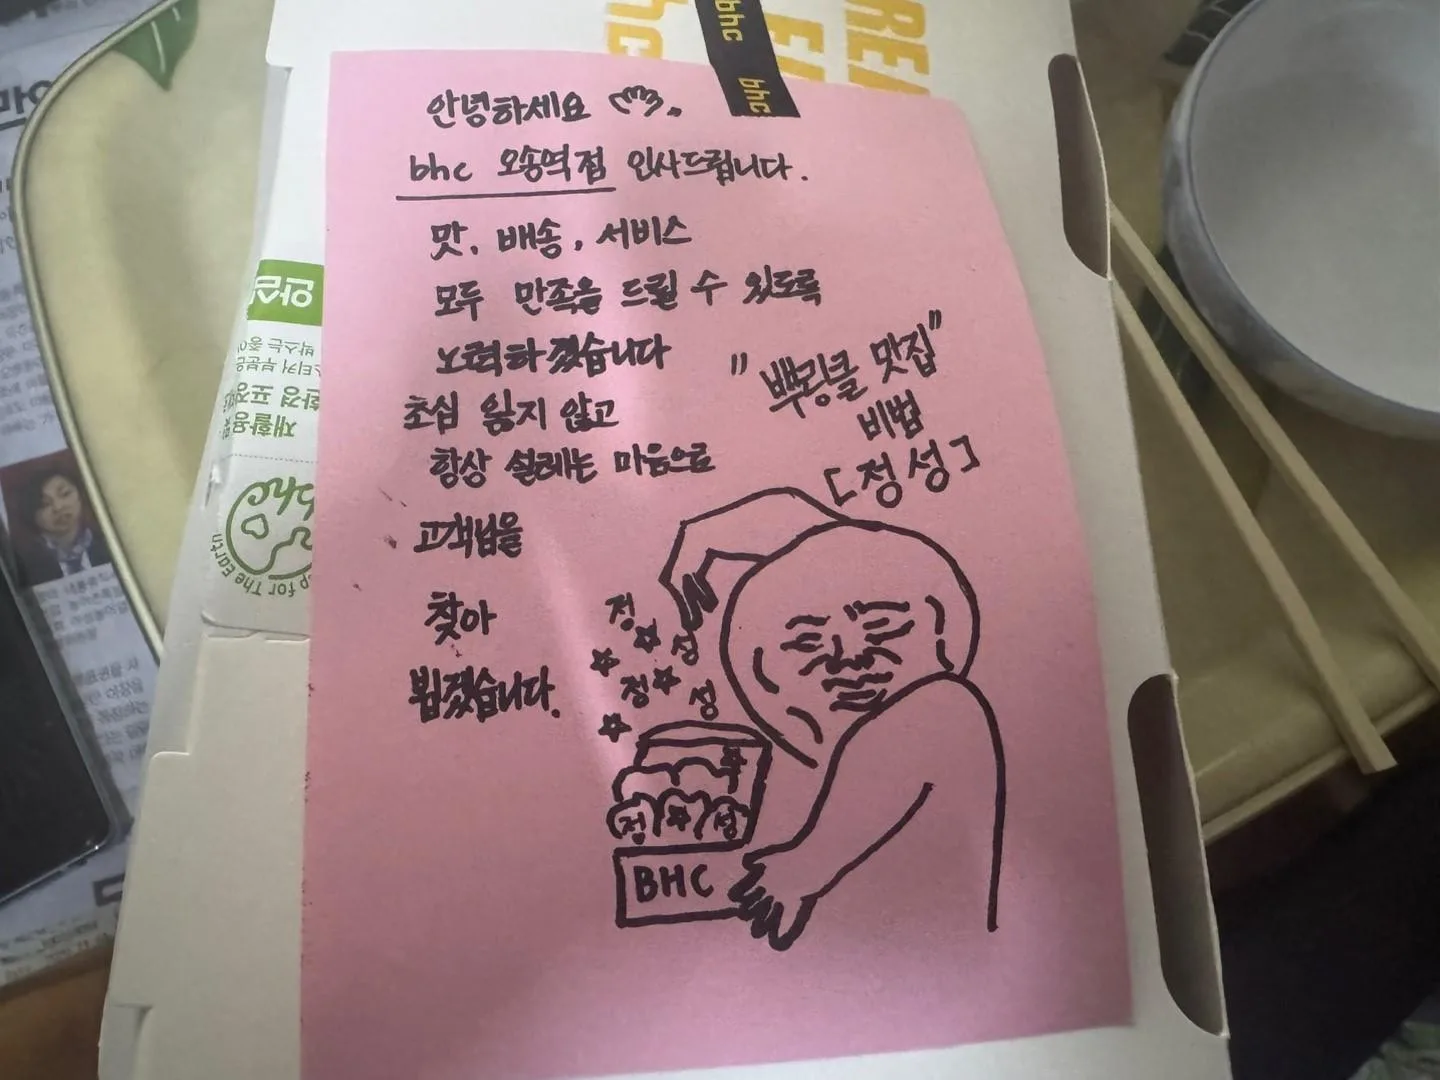 bhc
bhc
안녕하세요
bhc 오송역점 인사드립니다.
맛, 배송, 서비스
모두 만족을 드릴 수 있도록
노력하겠습니다
초심 잃지 않고
항상 설레는 마음으로
고객님을
찾아
뵙겠습니다.
"뿌링클 맛집"
비법
[정성]
정
성
정
성
정 성
BHC
안심
재활용
bhc
for The Earth